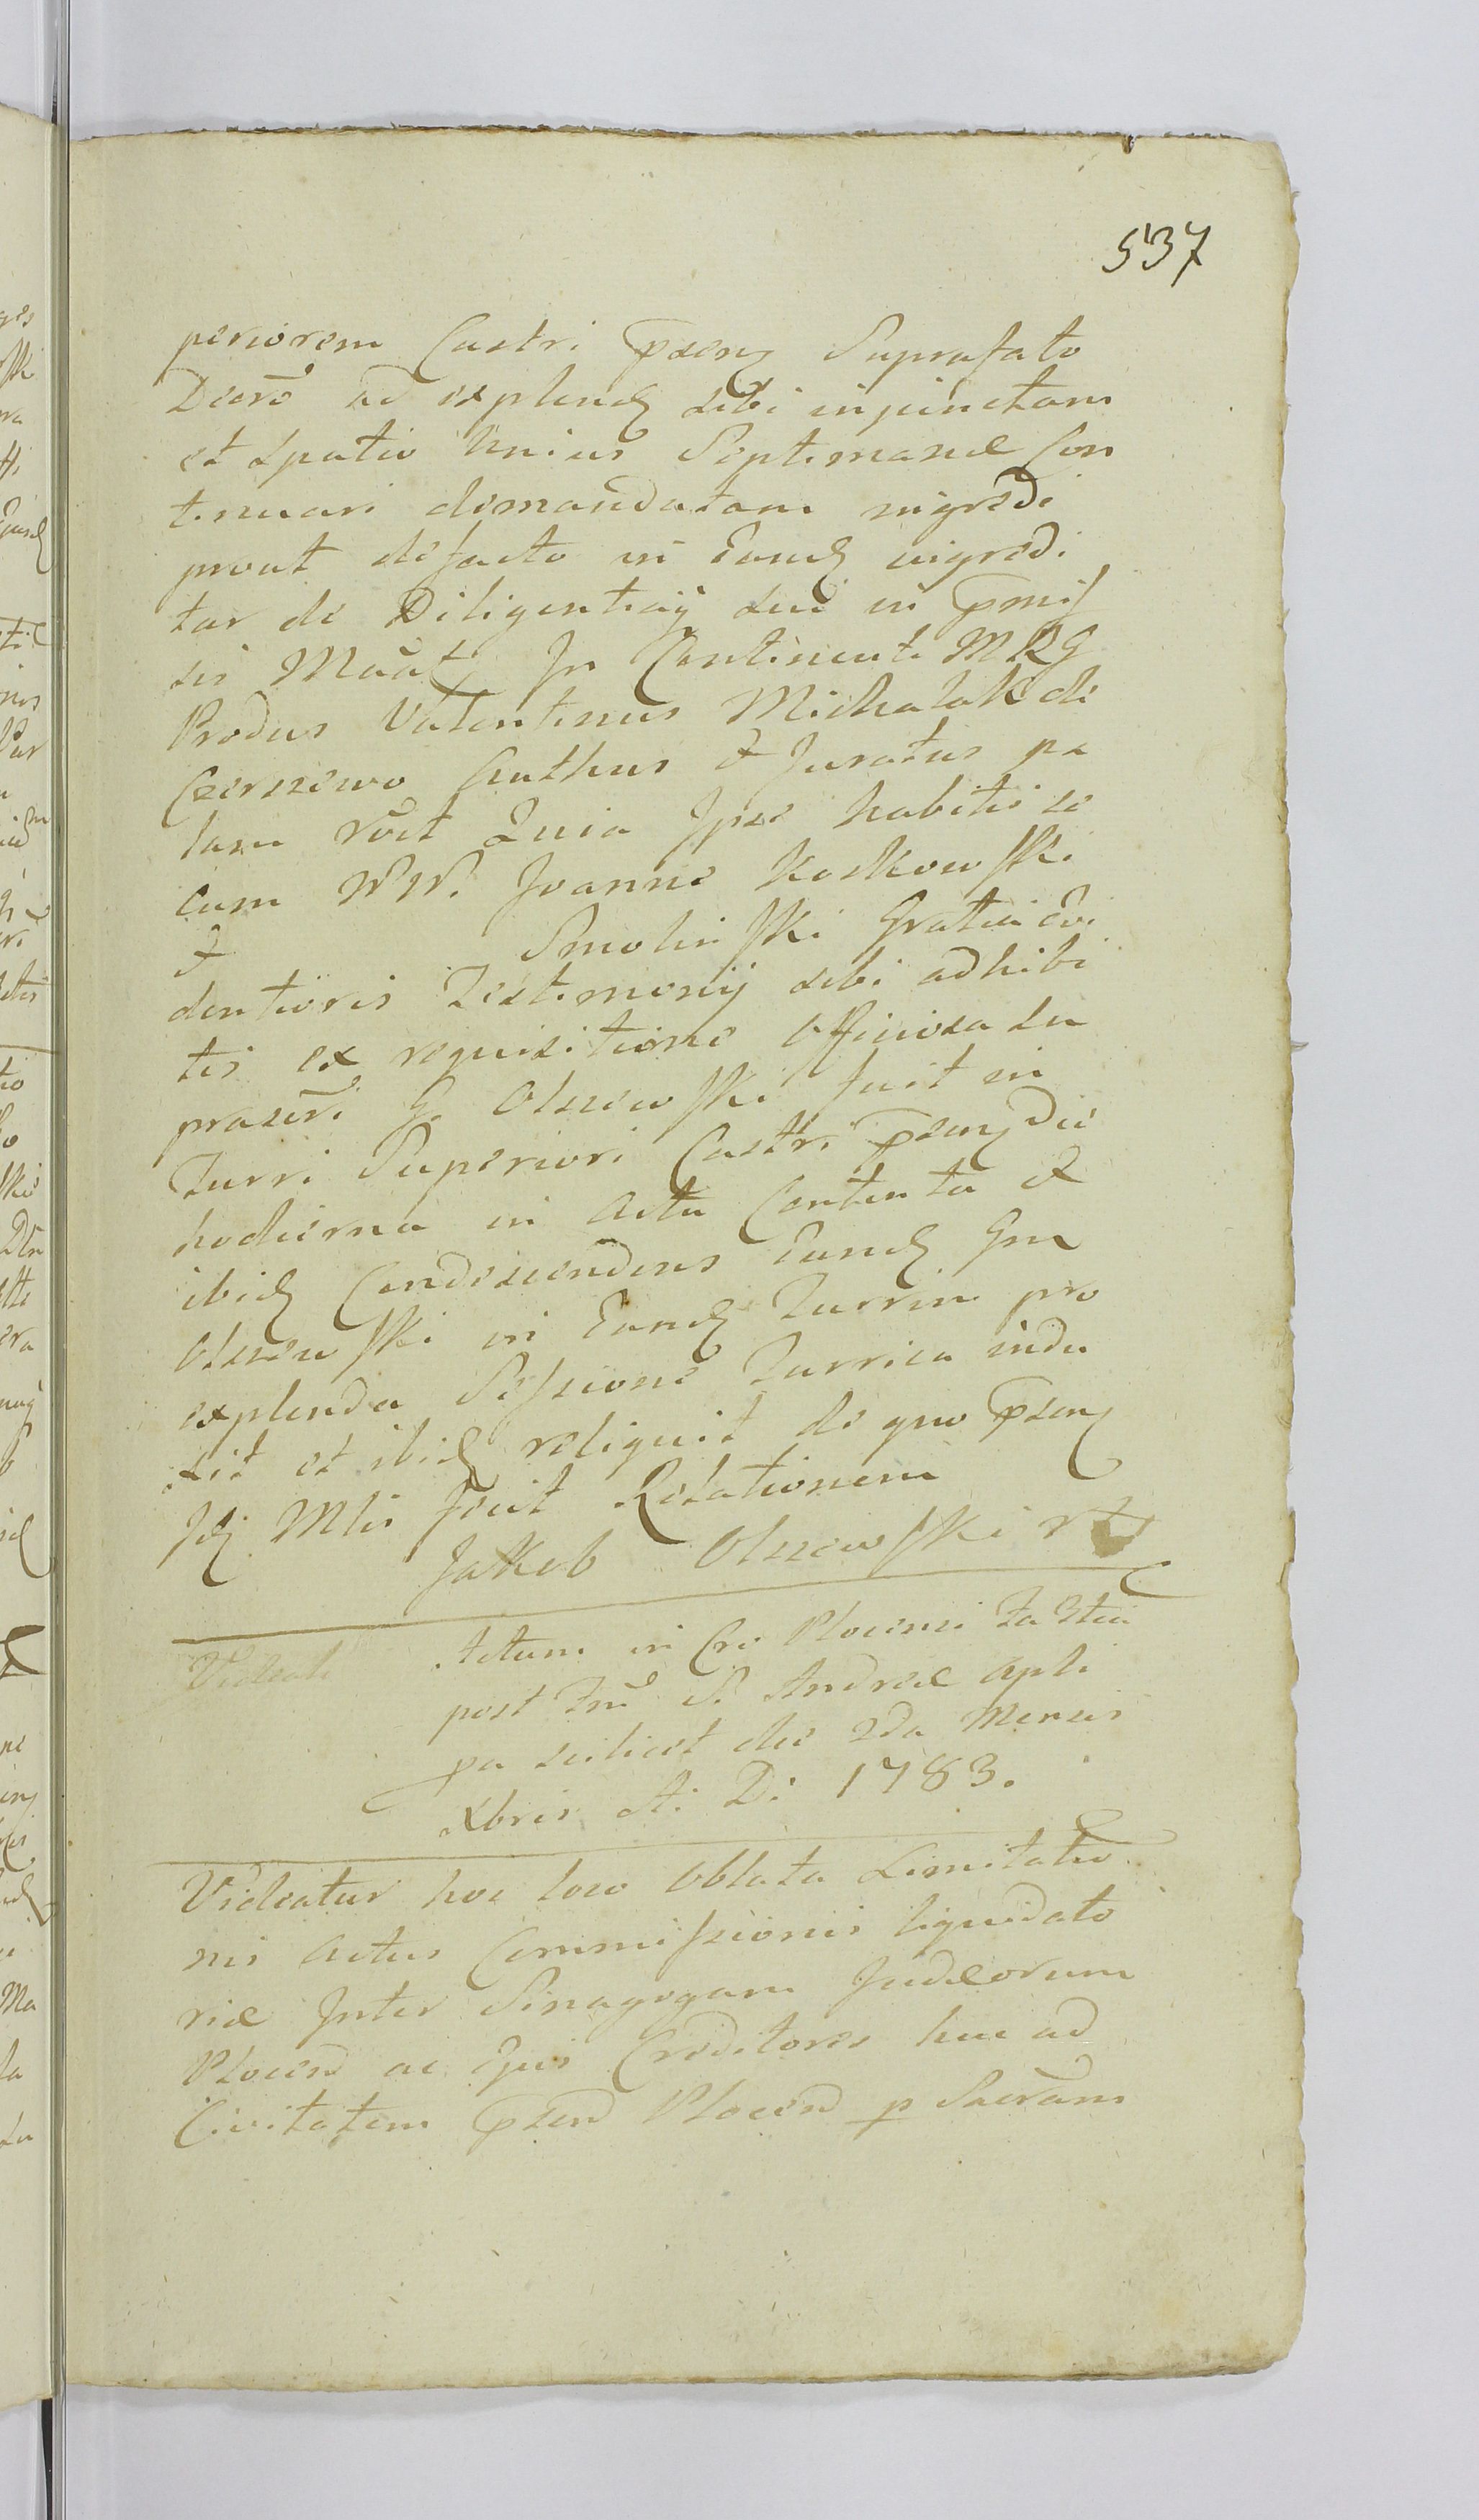 537
periorem Castri pseng Suprafato
Decrō ad explend sibi injunctam
et spatio Unius Septimanæ Con
tinuari demandatam ingredi
prout defacto in Eand ingredi
tur de Diligentiis sui in pmis
sis Maāt In Continenti MRG
Produs Valentinus Michalak de
Czerszewo Authus & Juratus pa
lam rōit Quia Ipse habitis se
cum WW. Joanne Koskowski
& Smolinski Gratia Evi
dentioris Testimonij sibi adhibi
tis ex requisitione Officiosa su
prascrī G. Olszewski fuit in
Turri Superiori Castri pseng die
hodierna in Actu Contenta &
ibid Condescendens Eund Gm
Olszewski in Eand Turrim pro
explenda Sessione Turrica indu
xit et ibid reliquit de quo pseng
Idj Mlis fecit Relationem
Jakub Olszewski
Videat Actum in Cro Plocensi
post S. Andreæ Apli
pa scilicet die 2da Mensis
Xbris A. D. 1783.
Videatur hoc loco Oblata Limitatio
nis Actus Commissionis liquidato
riæ Inter Sinagogam Judæorum
Plocen ac Ejus Creditores huc ad
Civitatem psen Plocen p Sacram